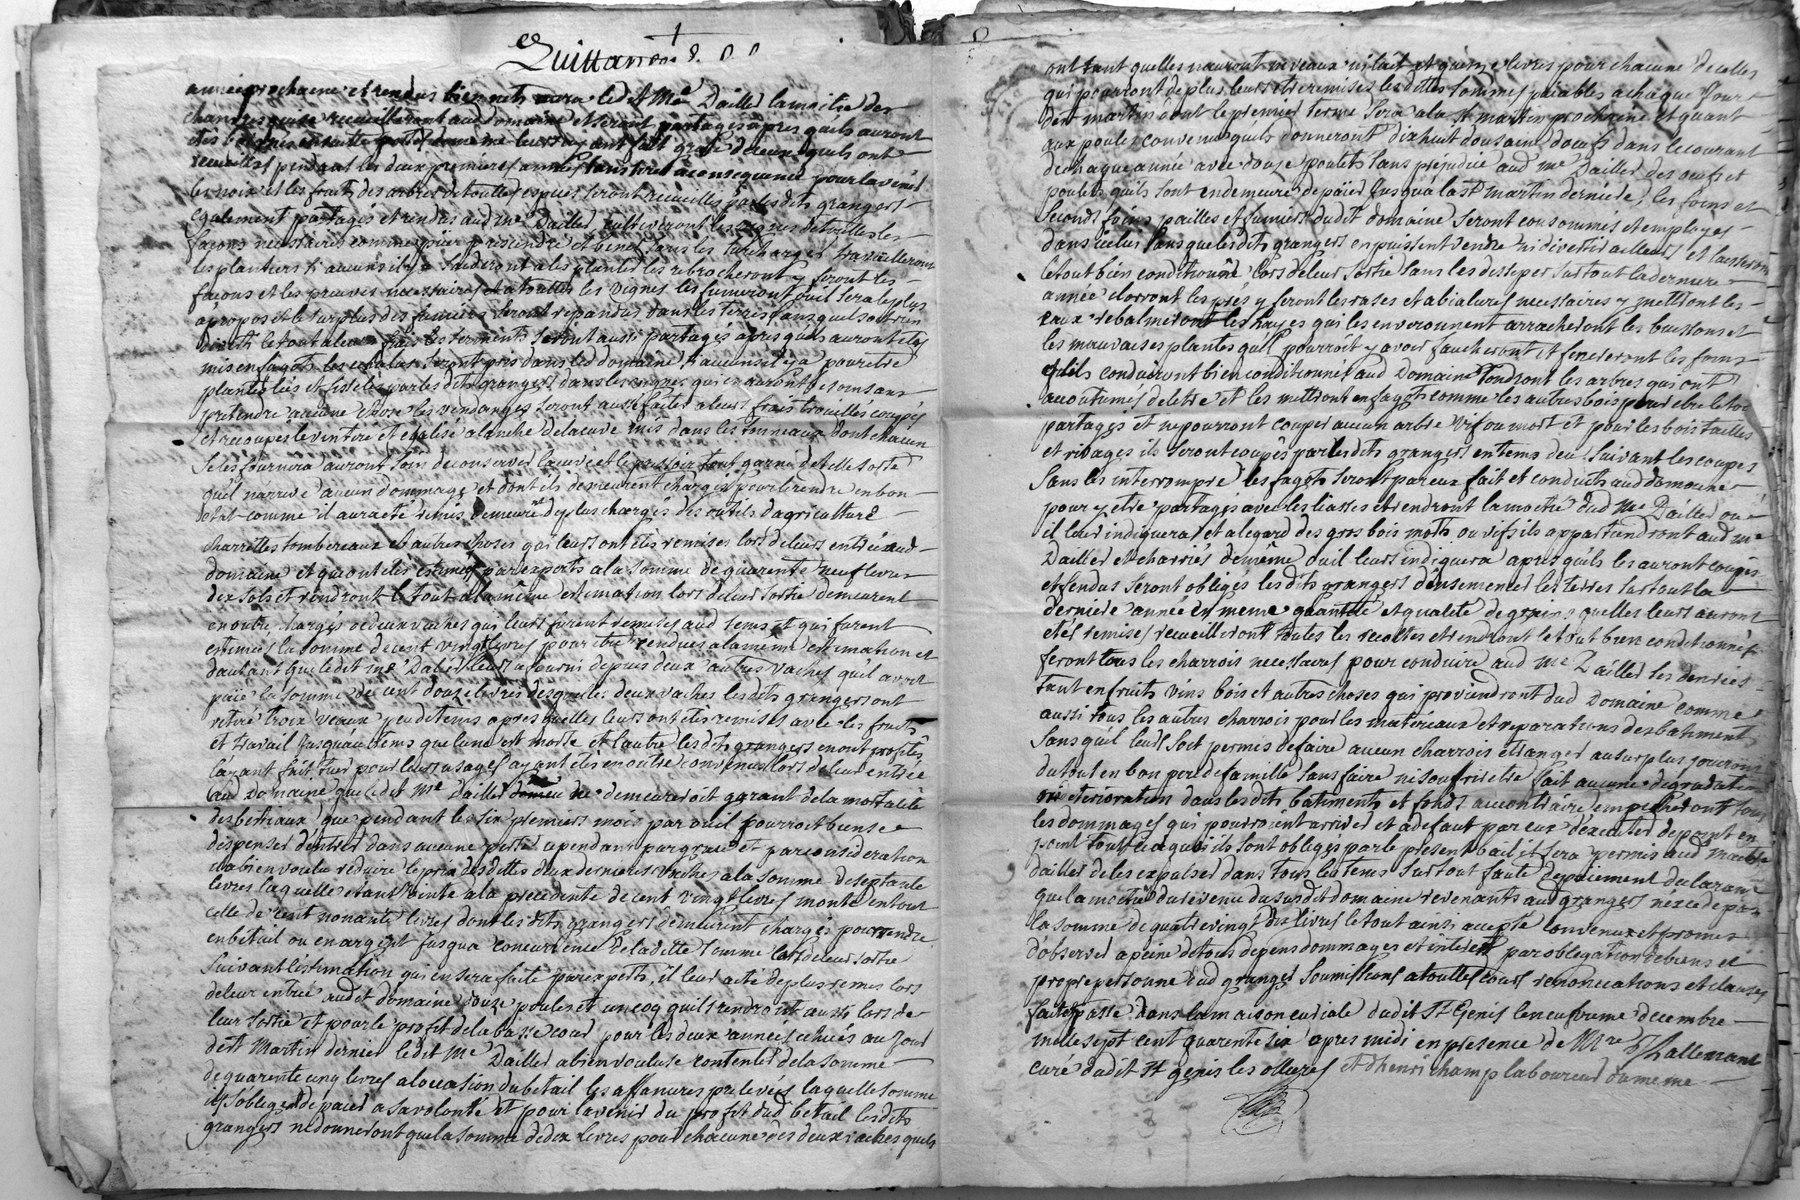 Quittances
année prochaine et rendus bien nets aura led Me Dailler la moitié des
chanvres qui se recueilleront aud domaine et seront partagés apres quils auront
recueillis pendant les deux premieres années sans tirer a consequence pour lavenir
les noix et les fruits des arbres de toutes especes seront recueillis par lesdits grangers
egalement partagés et rendus aud Me Dailler cultiveront les vignes de toutes les
façons necessaires
les plantiers les planter les rebrocheront y feront les
façons et les preuves necessaires et a touttes les vignes les fumeront ou il sera le plus
a propos et le surplus des fumiers seront repandus dans les terres sans quils soient
divertir le tout a leurs frais les serments seront aussi partagés apres quils auront etés
mis en fagots les echalas seront pris dans led domaine si aucuns il y a pour etre
plantés liés et fideles par lesdits grangers dans les vignes qui en auront besoin sans
pretendre aucune chose les vendanges seront aussi faites a leurs frais trouillés coupés
et recoupés le vin tiré et egalisé a lanche de la cuve mis dans les tonneaux dont chacun
se les fournira auront soin de conserver la cuve et le pressoir tout garni de telle sorte
quil narrive aucun dommage et dont ils demeurent chargés pour le rendre en bon
etat comme il aura eté remis demeurent de plus chargés des outils dagriculture
charrettes tombereaux et autres choses qui leurs ont etés remises lors de leurs entrée aud
domaine et qui ont etés estimés par experts a la somme de quarente neuf livres
dix sols et rendront le tout a la même estimation lors de leur sortie demeurent
en outre chargés de deux vaches qui leurs furent remises aud tems et qui furent
estimées la somme de cent vingt livres pour etre rendues a la meme estimation et
dautant que ledit Me Dailler leurs a fourni depuis deux autres vaches quil avoit
paié la somme de cent douze livres desquelles deux vaches lesdits grangers ont
retiré trois veaux peu de tems apres quelles leurs ont etés remises avec les fruits
et travail jusquau tems que lune est morte et lautre lesdits grangers en ont profité
layant fait tuer pour leurs usages ayant etés en outre convenus lors de leur entrée
aud domaine que ledit Me Dailler ne demeureroit garant de la mortalité
des bestiaux que pendant les six premiers mois par ou il pourroit bien se
dispenser dentrer dans aucune perte cependant par grace et par consideration
il a bien voulu reduire le prix desdittes deux dernieres vaches a la somme de septante
livres laquelle etant jointe a la precedente de cent vingt livres monte en tout
celle de cent nonante livres dont lesdits grangers demeurent chargés pour rendre
en betail ou en argent jusqua concurrence de laditte somme lors de leur sortie
suivant lestimation qui en sera faite par experts, il leur a eté de plus remis lors
de leur entrée audit domaine douze poules et un coq quils rendront aussi lors de
leur sortie et pour le profit de la basse cour pour les deux années echues au jour
de St Martin dernier ledit Me Dailler a bien voulu se contenter de la somme
de quarente cinq livres a loccasion du betail les affanures prelevées laquelle somme
ils sobligent de paier a sa volonté et pour lavenir du profit dud betail lesdits
grangers ne donneront que la somme de dix livres pour chacune des deux vaches quils
ont tant quelles nauront ni veaux ni lait et quinze livres pour chacune dicelles
qui pourront de plus leurs etre remises lesdittes sommes paiables a chaque jour
de St martin dont le premier terme sera a la St martin prochaine et quant
aux poules convenus quils donneront dix huit dousaine doeufs dans le courant
de chaque année avec douze poulets sans prejudice aud Me Dailler des oeufs et
poulets quils sont en demeure de paier jusqua la St martin derniere, les foins et
seconds foins pailles et fumiers dudit domaine seront consommés et employes
dans icelui sans que lesdits grangers en puissent vendre ni divertir ailleurs et laisseront
le tout bien conditionné lors de leur sortie sans les dissiper surtout la derniere
année clorront les prés y feront les rases et abialures necessaires y mettront les
eaux rebalmeront les hayes qui les environnent arracheront les buissons et
les mauvaises plantes quil pourroit y avoir faucheront et feneront les foins
quils conduiront bien conditionnés aud Domaine tondront les arbres qui ont
accoutumés de letre et les mettront en fagots comme les autres bois pour etre le tout
partagés et ne pourront couper aucun arbre vif ou mort et pour les bois taillés
et rivages ils seront coupés par lesdits grangers en tems deu suivant les coupes
sans les interrompre les fagots seront par eux fait et conduits aud domaine
pour y etre partagés avec les liasses et rendront la moitié dud Me Dailler ou
il leur indiquera et a legard des gros bois morts ou vifs ils appartiendront aud Me
Dailler et charriés de même ou il leurs indiquera apres quils les auront coupés
et fendus seront obligés lesdits grangers densemencer les terres surtout la
derniere année en meme quantité et qualité de grains quelles leurs auront
etés remises recueilleront toutes les recoltes et rendront le tout bien conditionnés
feront tous les charrois necessaires pour conduire aud Me Dailler les denrées
tant en fruits vins bois et autres choses qui proviendront dud Domaine comme
aussi tous les autres charrois pour les materiaux et reparations des batiments
sans quil leurs soit permis de faire aucun charrois etranger au surplus jouiront
du tout en bon pere de famille sans faire ni souffrir etre fait aucune degradation
ni deterioration dans lesdits bâtiments et fonds au contraire empecheront tous
les dommages qui pourroient arriver et a defaut par eux dexecuter de point en
point tout ce a quoi ils sont obligés par le present bail il sera permis aud Maitre
Dailler de les expulser dans tous les tems surtout faute de paiement declarant
que la moitié du revenu du susdit domaine revenants aud grangers nexcede pas
la somme de quatre vingt dix livres le tout ainsi accepté convenu et promis
dobserver a peine de tous depens dommages et interets par obligation de biens et
propre personne dud granger soumissions a touttes cours renonciations et clauses
fait et passé dans la maison curiale dudit St Genis le neufvieme decembre
mille sept cent quarente six apres midi en presence de Mre Lallemant
curé dudit St genis les ollieres et dhenri champ laboureur du meme